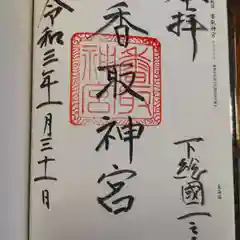 奉拝
下総國一之宮
香取神宮
香取神宮
令和三年一月三十一日